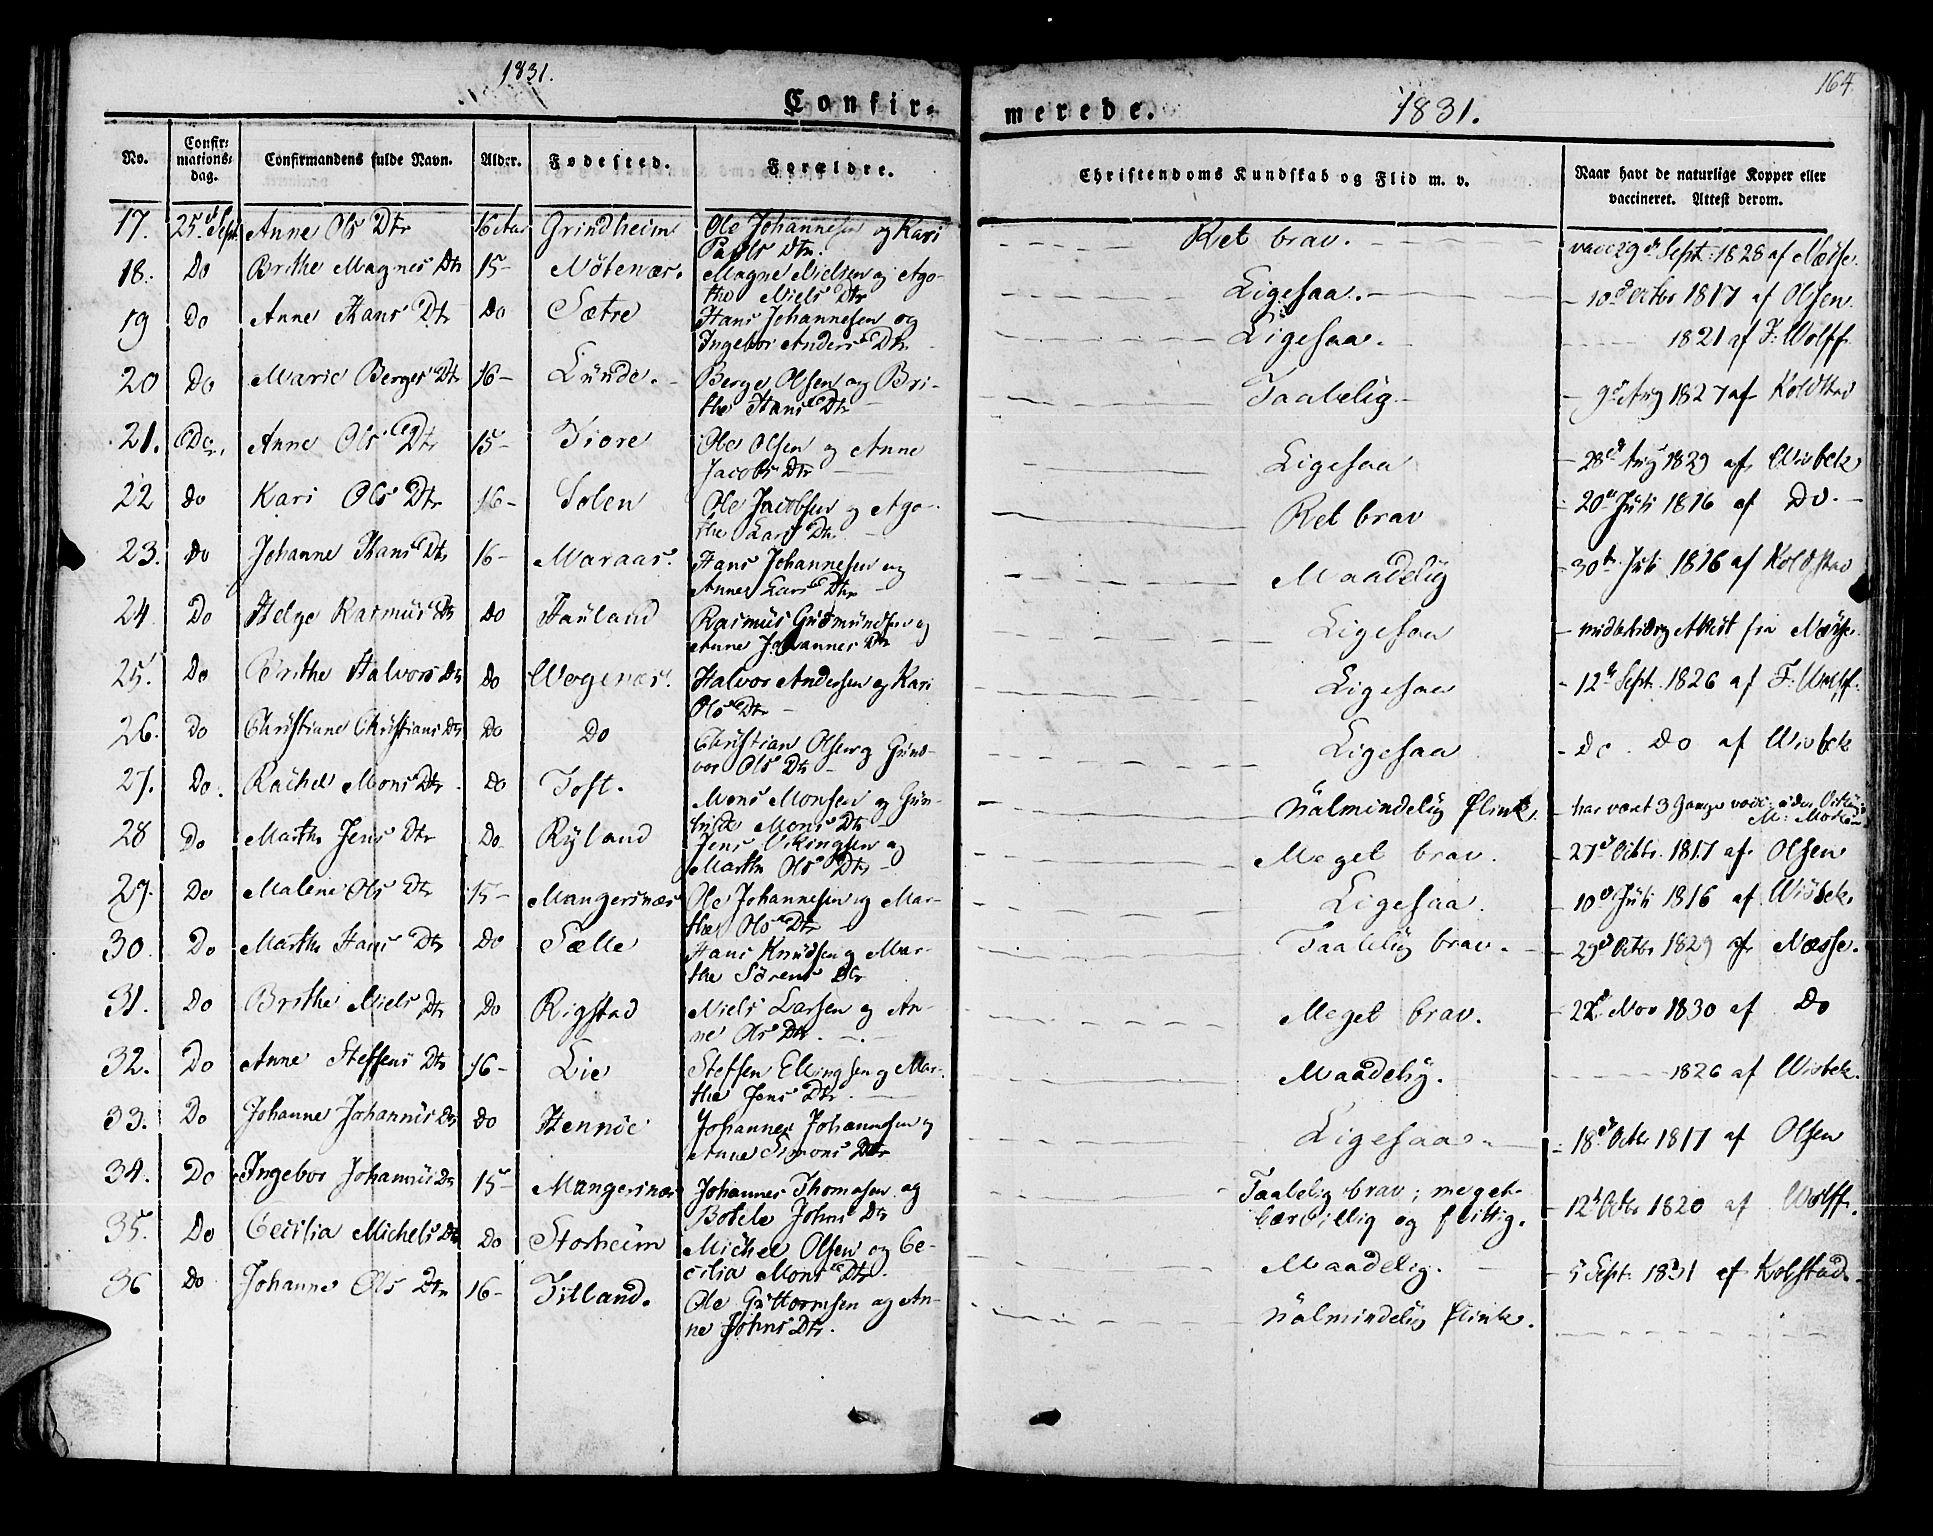 1831.
164
Confir-
merede.
1831.
No.
Confir-
mations-
dag.
Confirmandens fulde Navn.
Alder.
Fødested.
Forældre.
Christendoms Kundskab og Flid m. v.
Naar havt de naturlige Kopper eller
vaccineret. Attest derom.
17. 25d Sept. Anne Ols Dtr 16 Aar Grindheim Ole Johannesen og Kari
Pauls Dtr. Ret brav. vacc 29de Sept: 1828 af Næsse.
18. Do Brithe Magnes Dtr 15 - Nötenæs. Magne Nielsen og Ago-
the Niels Dtr Ligesaa. 10d Octbr 1817 af Olsen.
19 Do Anne Hans Dtr Do Sætre Hans Johannesen og
Ingebor Anders Dtr Ligesaa. 1821 af F: Wolff
20 Do Marie Berges Dtr 16 - Lunde. Berge Olsen og Bri-
the Hans Dtr Taalelig 9d Aug 1827 af Koldstad
21. Do. Anne Ols Dtr 15 - Tiore Ole Olsen og Anne
Jacobs Dtr Ligesaa 28d Aug 1829 af Wisbek
22 do Kari Ols Dtr 16 - Solen Ole Jacobsen og Ago-
the Lars Dtr. Ret brav 20de Juli 1816 af Do.
23. do Johanne Hans Dtr 16 - Maraas. Hans Johannesen og
Anne Lars Dtr Maadelig 30te Juli 1816 af Koldstad
24 Do Helge Rasmus Dtr do Hauland Rasmus Gudmundsen og
Anne Johannes Dtr Ligesaa Attest fra Næsse.
25. Do Brithe Halvors Dtr do Wogenæs. Halvor Andersen og Kari
Ols Dtr Ligesaa 12te Sept. 1826 af F: Wolff.
26. Do Christiane Christians Dtr Do Do Christian Olsen og Gun-
vor Ols Dtr Ligesaa Do. Do af Wisbek
27. Do. Rachel Mons Dtr do Toft. Mons Monsen og Gun-
Mons Dtr Ualmindelig flink. har været 3 Gange vacc:
28 Do Marthe Jens Dtr Do Ryland Jens Vikingsen og
Marthe Ols Dtr Meget brav. 27d Octbr. 1817 af Olsen
29. Do Malene Ols Dtr 15 - Mangersnæs Ole Johannesen og Mar-
the Ols Dtr Ligesaa. 10d Juli 1816 af Wisbek.
30. Do Marthe Hans Dtr Do Sælle Hans Knudsen og Mar-
the Sörens Dtr Taalelig brav. 29d Octbr 1829 af Næsse.
31. Do Brithe Niels Dtr Do Rigstad Niels Larsen og An-
ne Ols Dtr. Meget brav. 22d Nov 1830 af Do
32. Do Anne Steffens Dtr 16 - Lie Steffen Ellingsen og Mar-
the Jens Dtr Maadelig. 1826 af Wisbek.
33. Do Johanne Johannis Dtr do Hennöe Johannes Johannesen og
Anne Simons Dtr Ligesaa. 18d Octbr 1817 af Olsen
34. Do Ingebor Johannis Dtr 15 - Mangersnæs Johannes Thomasen og
Botele Johns Dtr Taalelig brav; meget
lærvillig og flittig. 12te Octbr 1820 af Wolff.
35. Do Cecilia Michels Dtr Do Storheim Michel Olsen og Ce-
cilia Mons Dtr. Maadelig. 5 Sept. 1831 af Kolstad.
36 Do Johanne Ols Dtr 16 - Titland. Ole Guttormsen og An-
ne Johns Dtr. Ualmindelig flink.